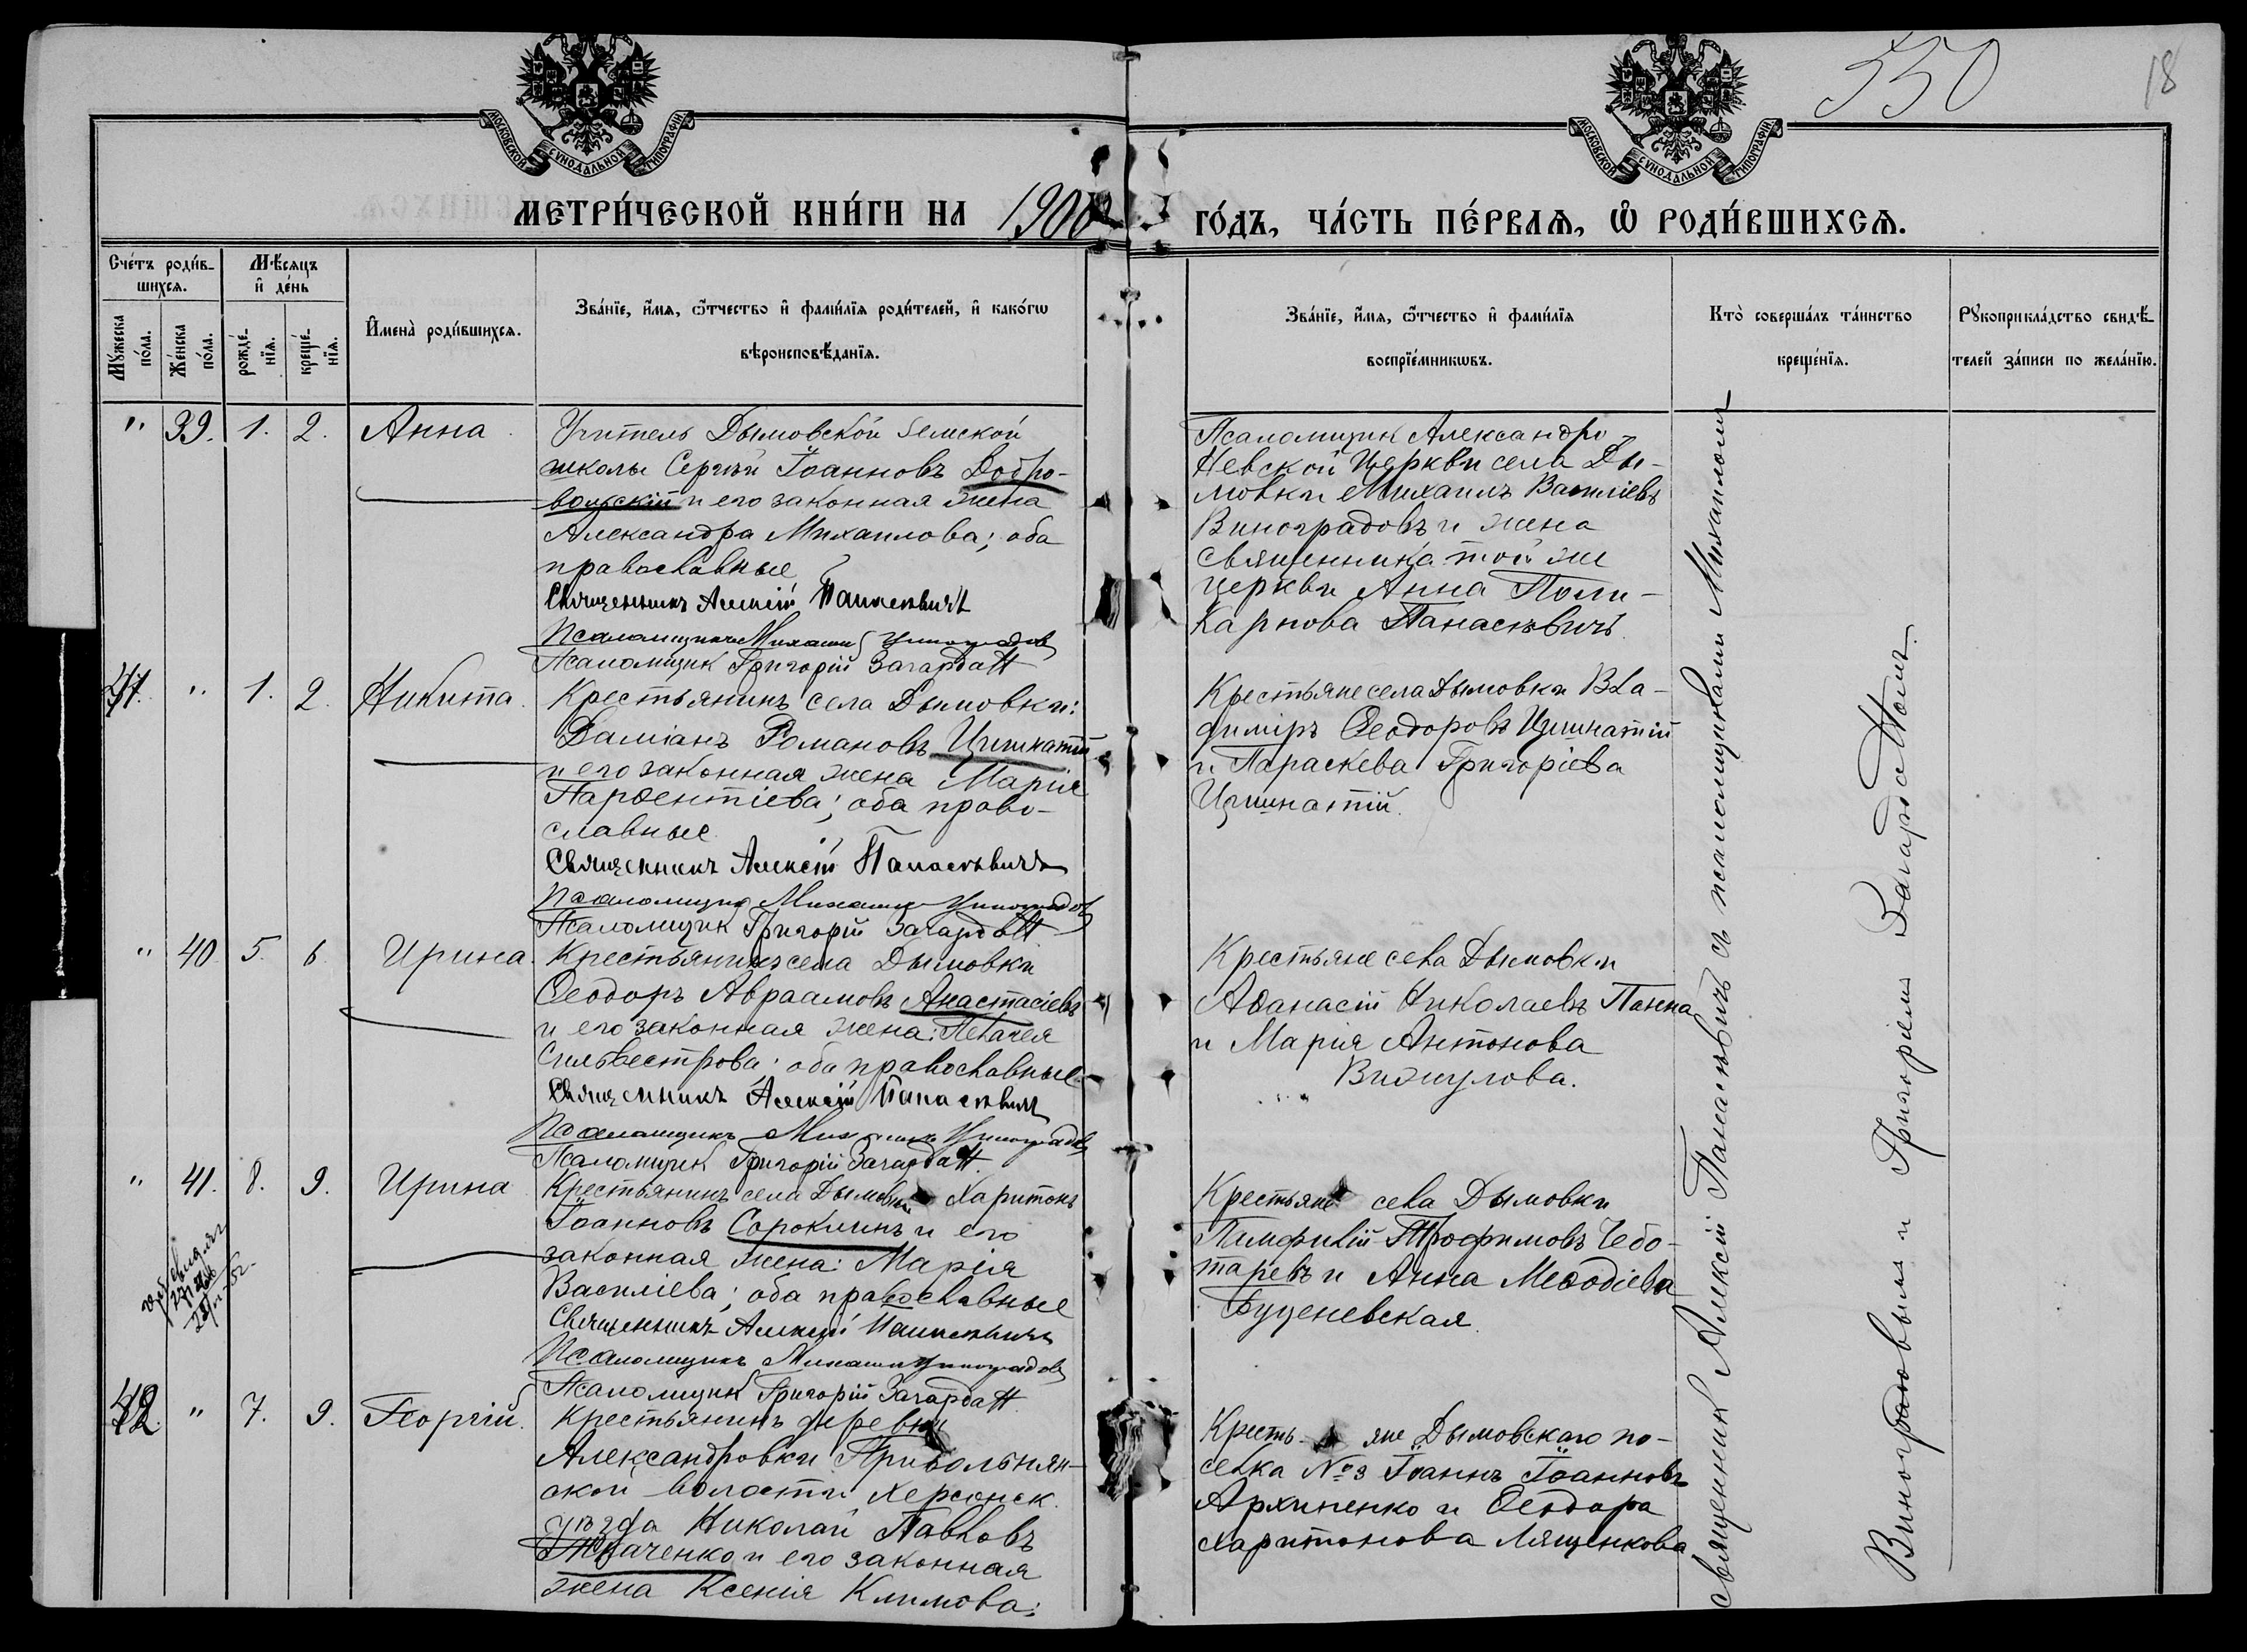 550
18
МОСКОВСКОЙ СѴНОДАЛЬНОЙ ТИПОГРАФІИ
МОСКОВСКОЙ СѴНОДАЛЬНОЙ ТИПОГРАФІИ
МЕТРИ́ЧЕСКОЙ КНИ́ГИ НА 1900
ГО́ДЪ, ЧА́СТЬ ПЕ́РВАѦ, Ѽ РОДИ́ВШИХСѦ.
Сче́тъ роди́в-
шихсѧ.
Мѣ́сяцъ
и҆ де́нь
Мꙋ́жеска по́ла.
Же́нска по́ла.
рожде́-нїѧ.
креще́-нїѧ.
И҆мена̀ роди́вшихсѧ.
Зва́нїе, и҆́мѧ, ѻ҆́тчество и҆ фами́лїѧ роди́телей, и҆ како́гѡ
вѣроисповѣ́данїѧ.
Зва́нїе, и҆́мѧ, ѻ҆́тчество и҆ фами́лїѧ
воспрїе́мникѡвъ.
Кто̀ соверша́лъ та́инство
креще́нїѧ.
Рꙋкоприкла́дство свидѣ́-
телей за́писи по жела́нїю.
" 39. 1. 2. Анна
Учитель Дымовской Земской
школы Сергѣй Іоанновъ Добро-
вольскій и его законная жена
Александра Михаилова; оба
православные
Священникъ Алексій Панасевичъ
Псаломщикъ Михаилъ Виноградов
Псаломщик Григорій Загардатт
Псаломщик Александро-
Невской Церкви села Ды-
мовки Михаилъ Василіевъ
Виноградовъ и жена
священника той же
церкви Анна Поли-
карпова Панасевичъ
41. " 1. 2. Никита.
Крестьянинъ села Дымовки:
Даміанъ Романовъ Цишнатій
и его законная жена Марія
Парѳентіева; оба право-
славные
Священникъ Алексій Панасевичъ
Псаломщикъ Михаилъ Виноградов
Псаломщик Григорій Загардатт
Крестьяне села Дымовки Вла-
димиръ Ѳеодоровъ Цишнатій
и Параскева Григоріева
Цишнатій.
" 40 5. 6. Ирина.
Крестьянинъ села Дымовки
Ѳеодоръ Авраамовъ Анастасіевъ
и его законная жена: Пелагея
Сильвестрова; оба православные
Священникъ Алексій Панасевичъ
Псаломщикъ Михаилъ Виноградов
Псаломщик Григорій Загардатт.
Крестьяне села Дымовки
Аѳанасій Николаевъ Панна
и Марія Антонова
Визигулова.
" 41. 8. 9. Ирина
Крестьянинъ села Дымовки Харитонъ
Іоанновъ Сорокинъ и его
законная жена: Марія
Василіева; оба православные
Священникъ Алексій Панасевичъ
Псаломщикъ Михаилъ Виноградов
Псаломщик Григорій Загардатт.
Крестьяне села Дымовки
Памфилій Трофимовъ Чебо-
таревъ и Анна Меѳодіева
Буценевская
42. " 7. 9. Георгій.
Крестьянинъ деревни
Александровки Привольнян-
ской волости, Херсонск.
уѣзда Николай Павловъ
Ткаченко и его законная
жена Ксенія Климова;
Крестьяне Дымовскаго по-
селка № 3 Іоаннъ Іоанновъ
Архипенко и Ѳеодора
Харитонова Лященкова
священник Алексій Панасевичъ съ псаломщиками Михаиломъ
Виноградовымъ и Григоріемъ Загардаттомъ.